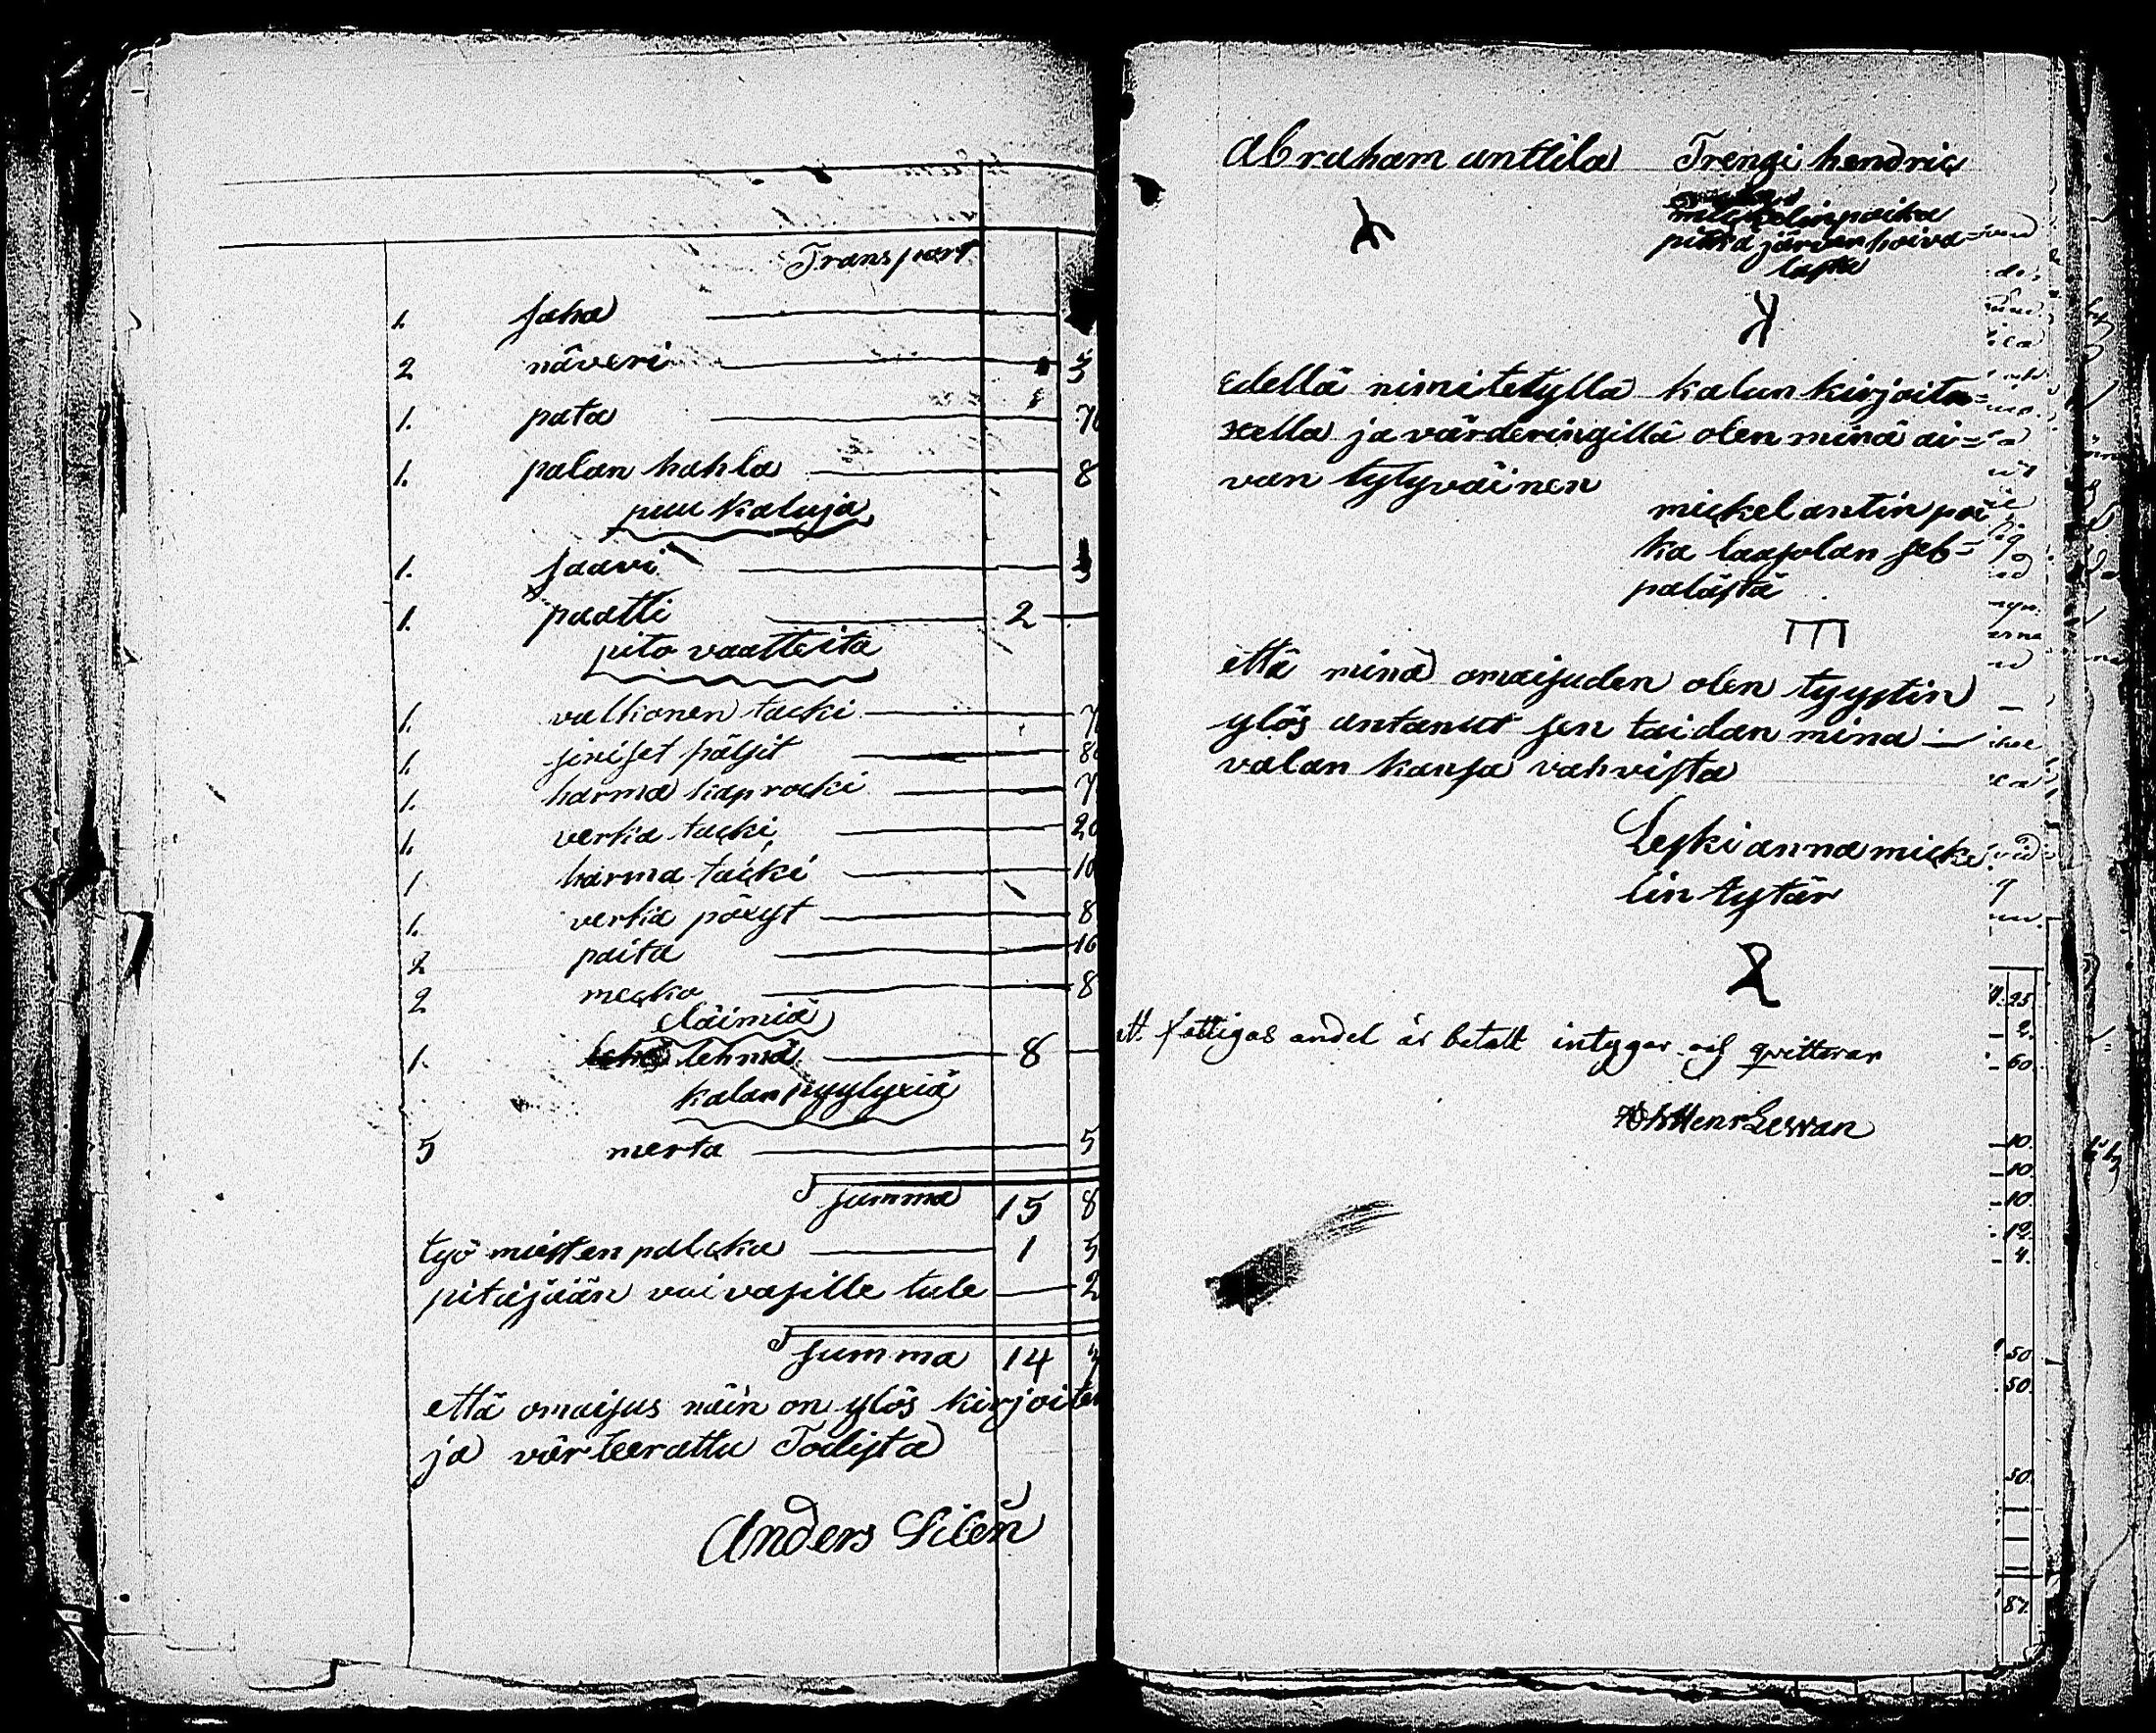 Transport
1. saha
2 näveri 5
1. pata 70
1. palan hahla 8
puu kaluja
1. saavi
1. paatti 2
pito vaatteita
1. valkonen tacki 7
1. siniset pälsit 80
1. harma kaprocki 7
1. verka tacki 20
1 harma tacki 10
1. verka pöxyt 8
2 paita 16
2 mecko 8
eläimiä
1. lehmä 8
kalan pyylyxiä
5 merta 5
summa 15 8
työ miesten palcka 1 5
pitäjään vaivasille tule 2
summa 14
että omaisus näin on ylös kirjoitet
ja värteerattu Todista
Anders Silén
Abraham anttila Trengi hendric
mickelin poika
pitkäjärven hoiva=
lasta
edellä nimitetyllä kalun kirjoita=
xella ja värderingillä olen minä ai=
van tytyväinen
mickel antin poi
ka laajolan seb=
palästä
että minä omaisuden olen tyystin
ylös antanut sen taidan minä
valan kansa vahvista
Leski anna micke
lin tytär
att fattigas andel är betalt intygar och qvitterar